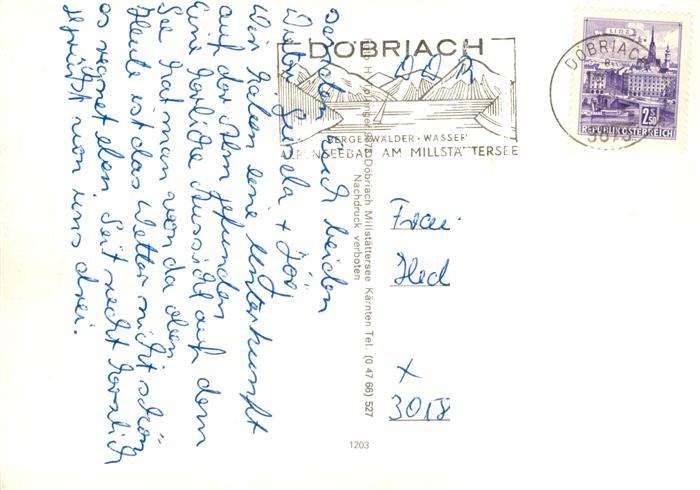 DÖBRIACH
BERGE·WÄLDER·WASSER
ALPENSEEBAD AM MILLSTÄTTERSEE
DÖBRIACH
LINZ
2.50
REPUBLIK ÖSTERREICH
Döbriach Millstättersee Kärnten Tel. (0 47 66) 527
Nachdruck verboten
1203
Senden Euch beiden
+ Jörg
Wir haben eine Unterkunft
auf der Alm gefunden
Eine herliche Aussicht auf dem
See hat man von da oben
Heute ist das Wetter nicht schön
es regnet eben. Seit recht herzlich
gegrüsst von uns drei.
Frau
Hed
x
3018